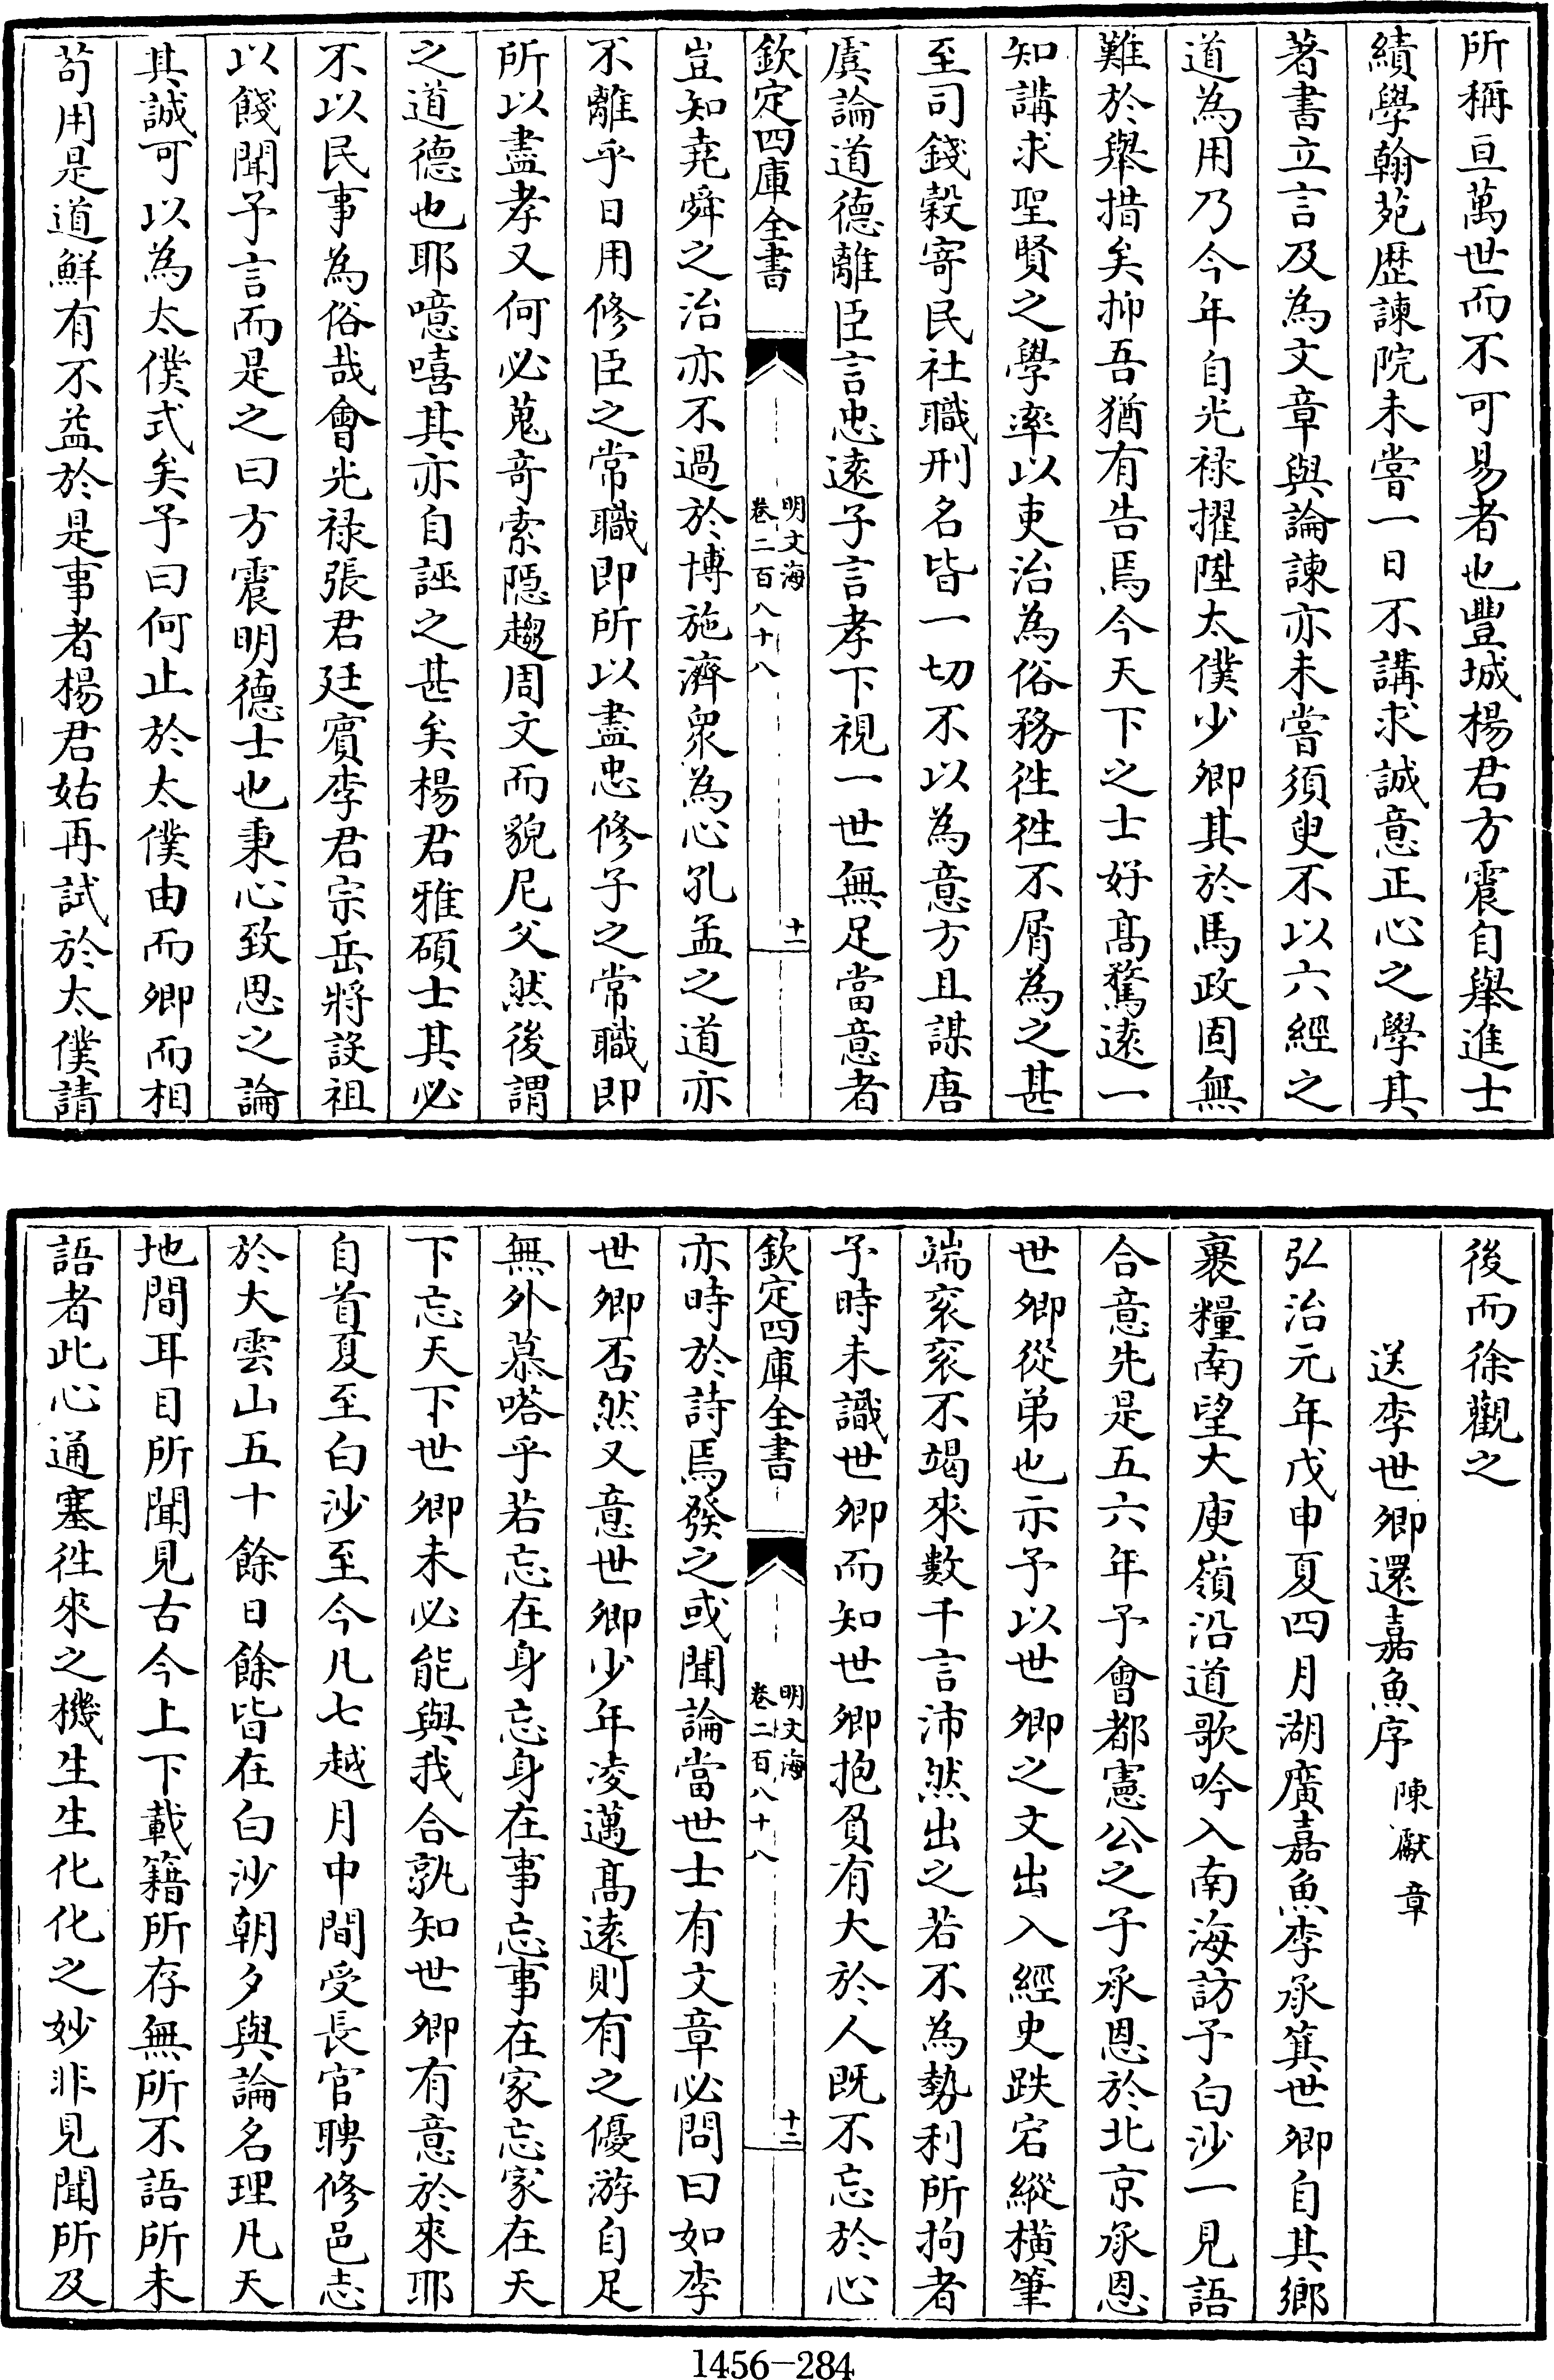 所稱亘萬世而不可易者也豐城楊君方震自舉進士
績學翰苑歴諫院未嘗一日不講求誠意正心之學其
著書立言及為文章與論諫亦未嘗須臾不以六經之
道為用乃今年自光祿擢陞太僕少卿其於馬政固無
難於舉措矣抑吾猶有告焉今天下之士好髙騖逺一
知講求聖賢之學率以吏治為俗務徃徃不屑為之甚
至司錢穀寄民社職刑名皆一切不以為意方且謀唐
虞論道德離臣言忠逺子言孝下視一世無足當意者
欽定四庫全書
明文海
卷二百八十八
十一
豈知堯舜之治亦不過於博施濟衆為心孔孟之道亦
不離乎日用修臣之常職即所以盡忠修子之常職即
所以盡孝又何必蒐竒索隱趨周文而貌尼父然後謂
之道德也耶噫嘻其亦自誣之甚矣楊君雅碩士其必
不以民事為俗哉會光祿張君廷賓李君宗岳將設祖
以餞聞予言而是之曰方震明德士也秉心致思之論
其誠可以為太僕式矣予曰何止於太僕由而卿而相
苟用是道鮮有不益於是事者楊君姑再試於太僕請
後而徐觀之
送李世卿還嘉魚序 陳獻章
弘治元年戊申夏四月湖廣嘉魚李承箕世卿自其鄉
裹糧南望大庾嶺沿道歌吟入南海訪予白沙一見語
合意先是五六年予會都憲公之子承恩於北京承恩
世卿從弟也示予以世卿之文出入經史跌宕縱横筆
端衮衮不竭來數千言沛然出之若不為勢利所拘者
予時未識世卿而知世卿抱負有大於人既不忘於心
欽定四庫全書
明文海
卷二百八十八
十二
亦時於詩焉發之或聞論當世士有文章必問曰如李
世卿否然又意世卿少年凌邁髙逺則有之優游自足
無外慕嗒乎若忘在身忘身在事忘事在家忘家在天
下忘天下世卿未必能與我合孰知世卿有意於來耶
自首夏至白沙至今凡七越月中間受長官聘修邑志
於大雲山五十餘日餘皆在白沙朝夕與論名理凡天
地間耳目所聞見古今上下載籍所存無所不語所未
語者此心通塞徃來之機生生化化之妙非見聞所及
1456—284